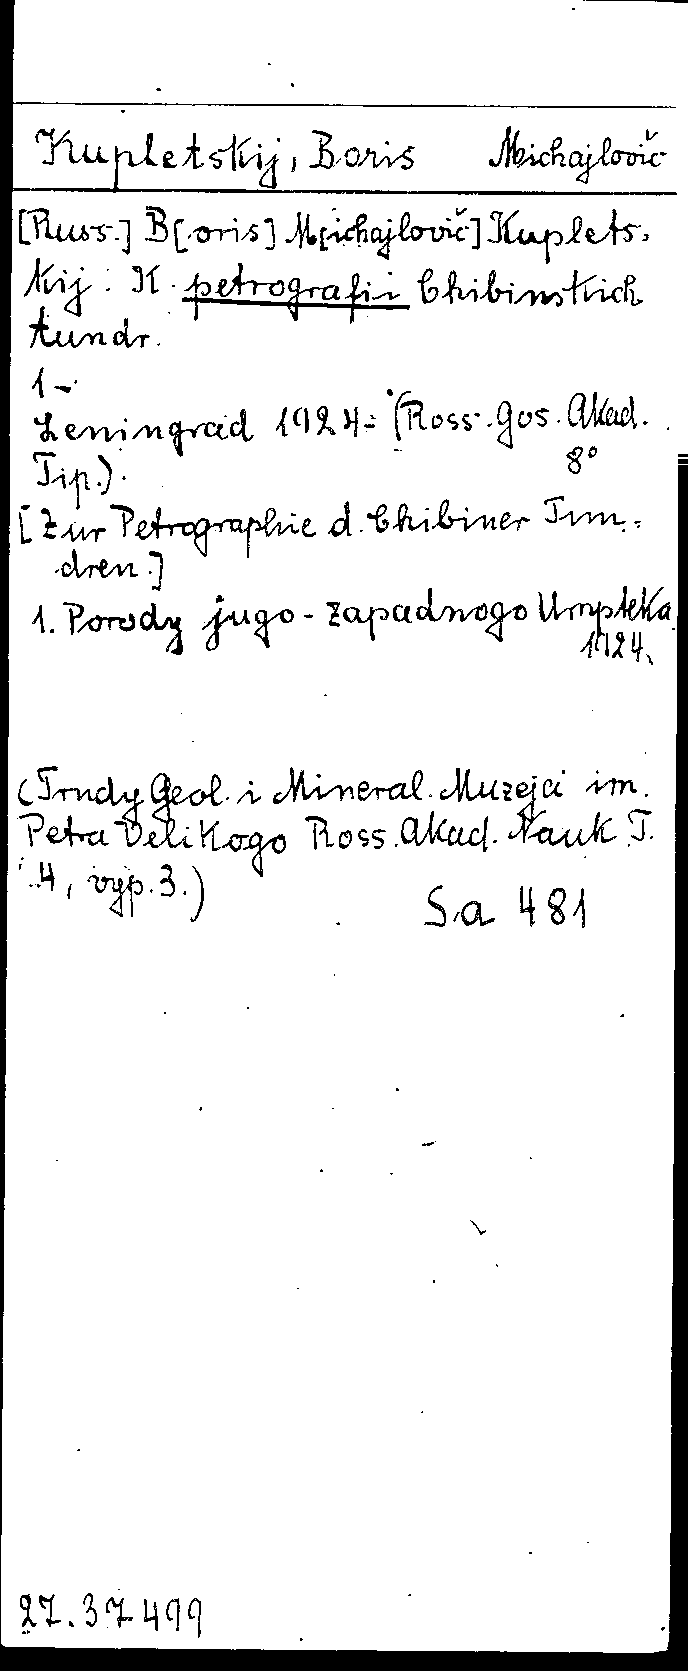 Kupletskij, Boris Michajlovič
[Russ.] B[oris] M[ichajlovič] Kuplets-
kij: K petrografii Chibinskich
tundr.
1-
Leningrad 1924- (Ross. Gos. Akad.
Tip.). 8°
[Zur Petrographie d. Chibiner Tun-
dren.]
1. Porody jugo-zapadnogo Umpteka
1924.
(Trudy Geol. i Mineral. Muzeja im.
Petra Velikogo Ross. Akad. Nauk T.
4, vyp. 3.)
Sa 481
27.37499